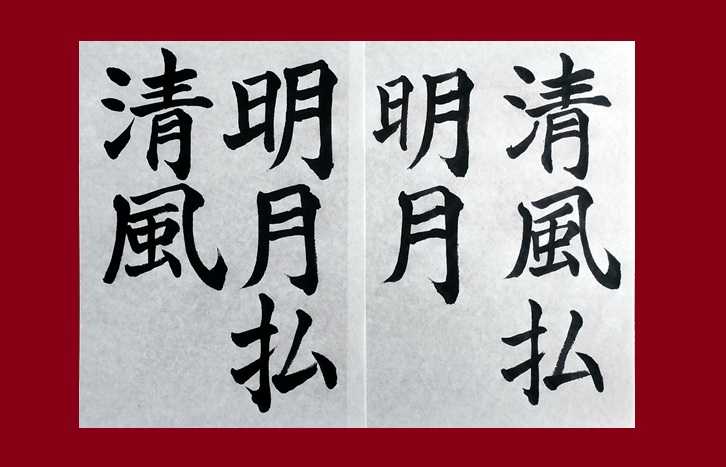 清風払
明月
明月払
清風